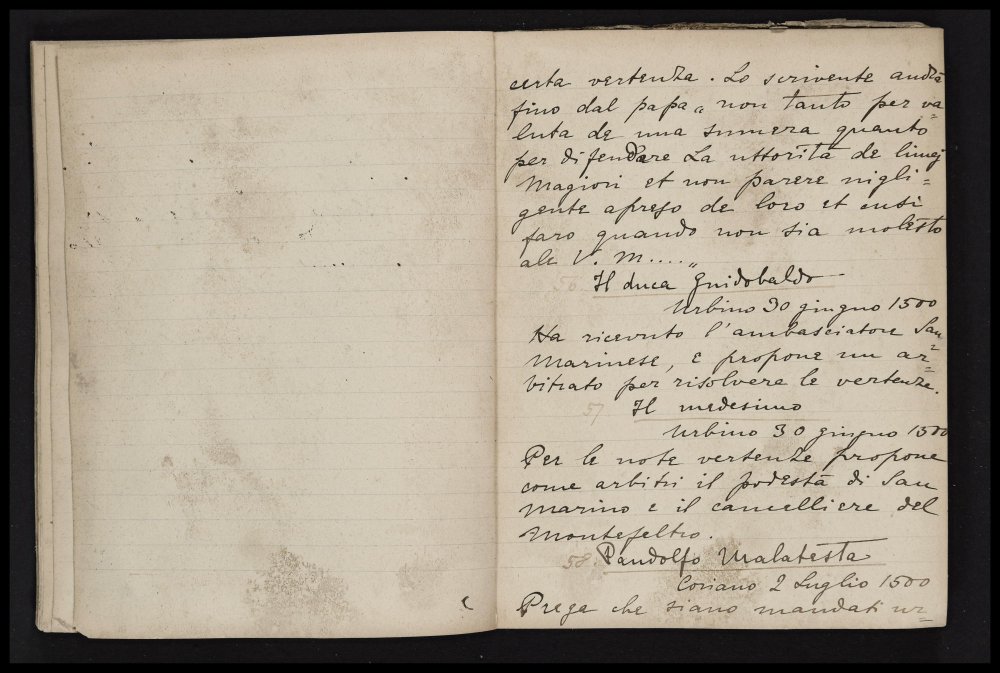 certa vertenza. Lo scrivente andrà
fino dal papa "non tanto per va=
luta de una summera quanto
per difendere La uttorità de limej
Magiori et non parere nigli=
gente apreso de loro et cusì
faro quando non sia molesto
ale V. M...."
56. Il duca Guidobaldo
Urbino 30 giugno 1500
Ha ricevuto l'ambasciatore San
Marinese, e propone un ar=
bitrato per risolvere le vertenze.
57 Il medesimo
Urbino 30 giugno 1500
Per le note vertenze propone
come arbitri il podestà di San
Marino e il cancelliere del
Montefeltro.
58. Pandolfo Malatesta
Coriano 2 Luglio 1500
Prega che siano mandati ur=